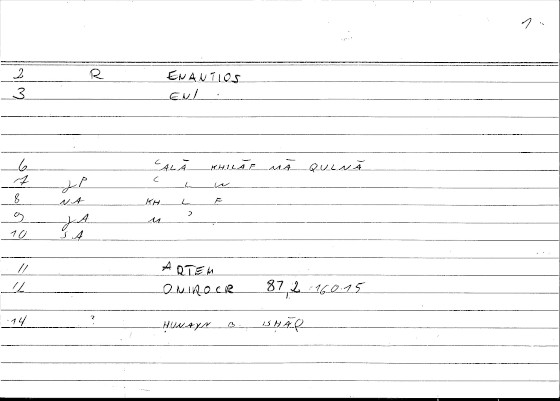 1
2 R ENANTIOS
3 ENI
6 ʿALĀ KHILĀF MĀ QULNĀ
7 JP ʿ L W
8 NA KH L F
9 JA M ʾ
10 SA
11 ARTEM
12 ONIROCR 87,2 160.15
14 ? HUNAYN B. ISHĀQ